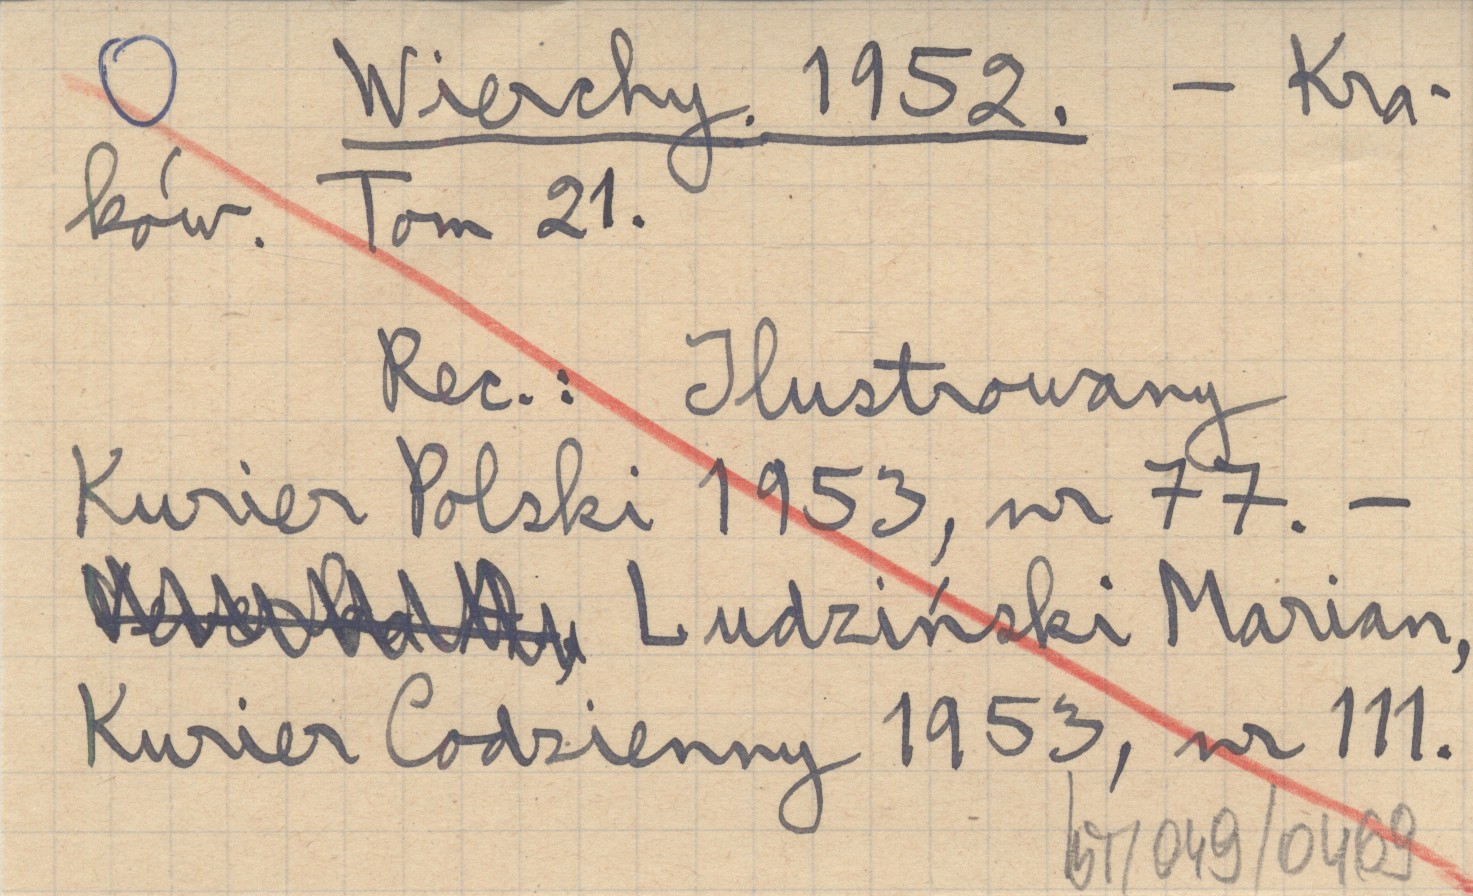 O Wierchy. 1952. – Kra-
ków. Tom 21.
Rec.: Ilustrowany
Kurier Polski 1953, nr 77. –
Ludziński Marian,
Kurier Codzienny 1953, nr 111.
/049/0469